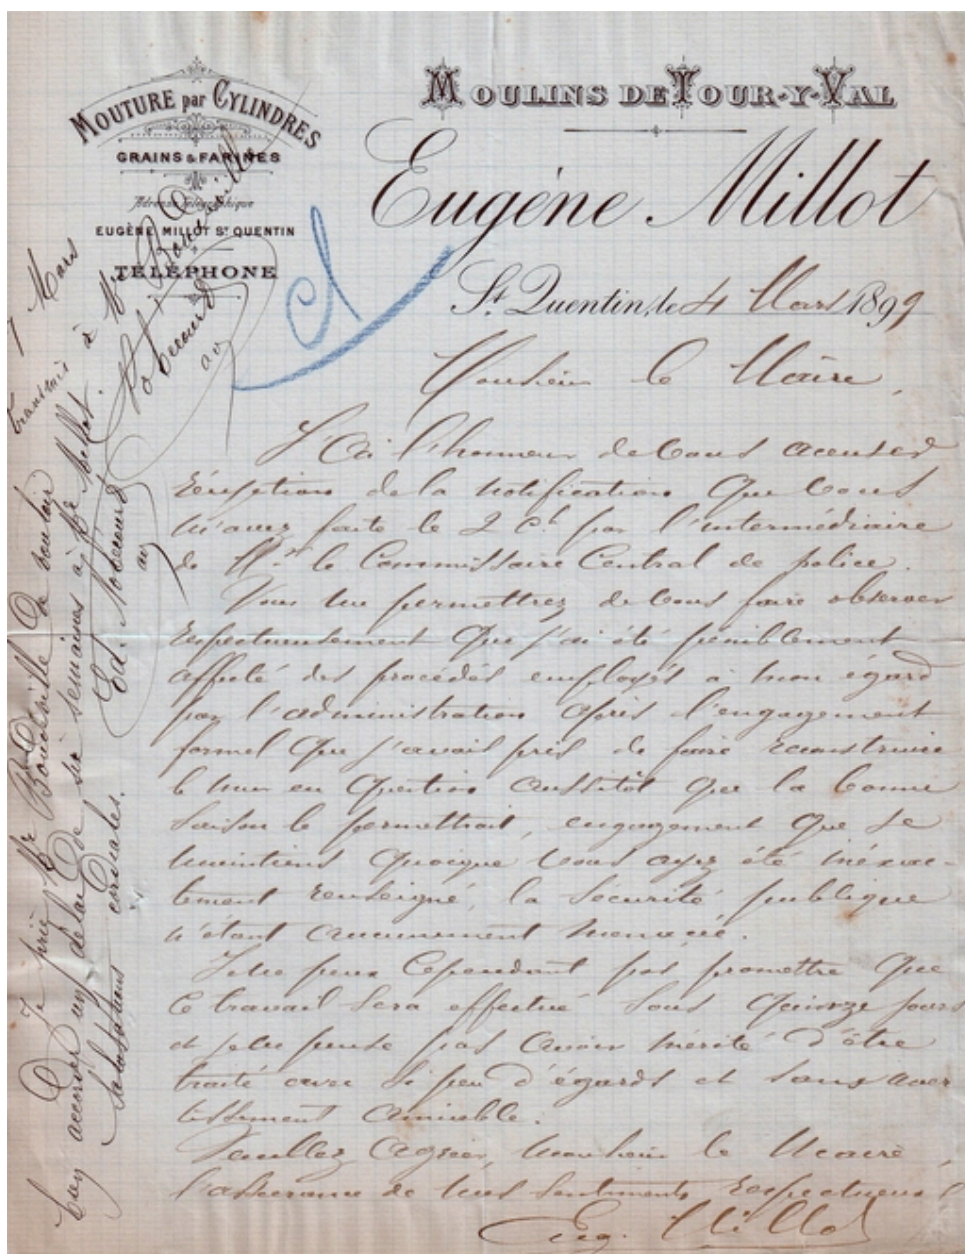 MOUTURE par CYLINDRES
GRAINS & FARINES
Adresse Télégraphique
EUGÈNE MILLOT St QUENTIN
TÉLÉPHONE
MOULINS DE TOUR-Y-VAL
Eugène Millot
St Quentin, le 4 Mars 1899
Monsieur le Maire,
J'ai l'honneur de vous accuser
réception de la notification que vous
m'avez faite le 2 ct par l'intermédiaire
de Mr le Commissaire Central de police.
Vous me permettrez de vous faire observer
respectueusement que j'ai été péniblement
affecté des procédés employés à mon égard
par l'administration après l'engagement
formel que j'avais pris de faire reconstruire
le mur en question aussitôt que la bonne
saison le permettrait, engagement que je
maintiens quoique vous ayez été inéxac-
tement renseigné, la sécurité publique
n'étant aucunement menacée.
Je ne peux cependant pas promettre que
ce travail sera effectué sous quinze jours
et je ne pense pas avoir mérité d'être
traité avec si peu d'égards et sans aver
tissement amiable.
Veuillez agréer, Monsieur le Maire,
l'assurance de mes sentiments respectueux
Eug. Millot
transmis à Mr
7 Mars
Je prie Mr de vouloir
bien accorder un délai de six semaines à Mr Millot.
Salutations cordiales.